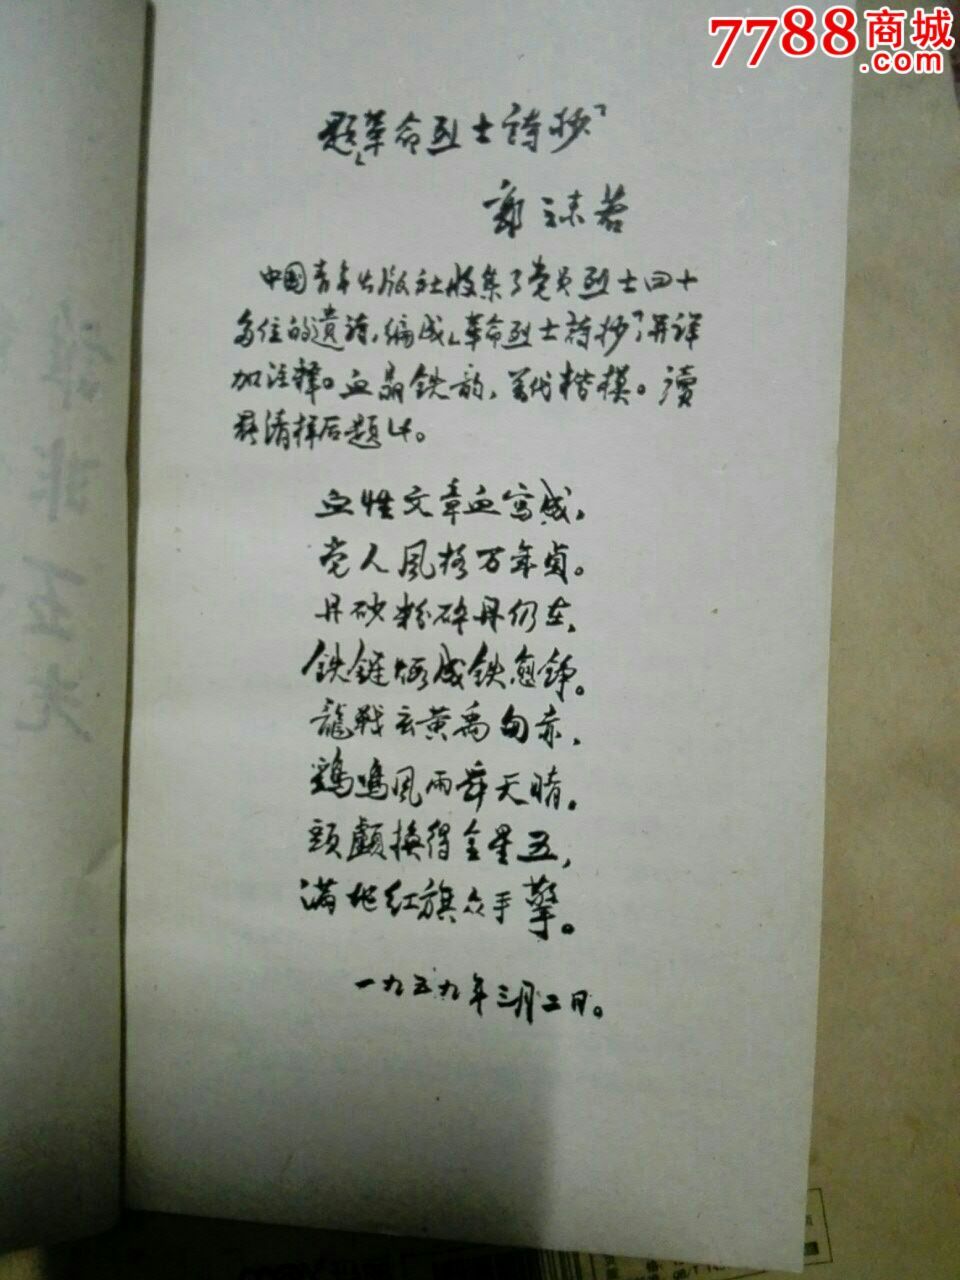 7788商城
.com
题「革命烈士诗抄」
郭沫若
中国青年出版社收集了党员烈士四十
多位的遗诗,编成「革命烈士诗抄」,并详
加注释。血晶铁韵,万代楷模。读
其清样后题此。
血性文章血写成,
党人风格万年贞。
丹砂粉碎丹仍在,
铁链煅成铁愈铮。
龍战玄黄禹甸赤,
鷄鳴风雨舜天晴。
頭顱换得金星五,
满地红旗众手擎。
一九五九年三月二日。